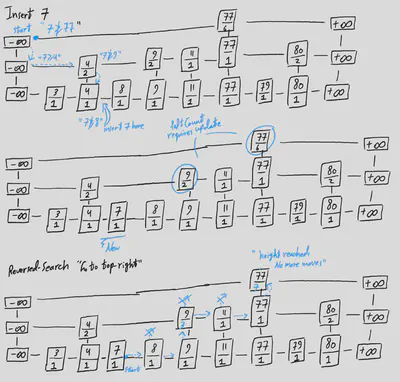 Insert 7
start "7≱77"
77
6
-∞
+∞
"7≥4"
"7≱9"
-∞
4
2
9
2
11
1
77
1
80
2
+∞
-∞
3
1
4
1
8
1
9
1
11
1
77
1
79
1
80
1
+∞
"7≱8"
insert 7 here
left Count
requires update
77
6
-∞
+∞
-∞
4
2
9
2
11
1
77
1
80
2
+∞
-∞
3
1
4
1
7
1
8
1
9
1
11
1
77
1
79
1
80
1
+∞
New
Reversed-Search "Go to top-right"
"height reached
No more moves"
77
7
-∞
+∞
-∞
4
2
9
11
1
77
1
80
2
+∞
-∞
3
1
4
1
7
1
8
1
9
1
11
1
77
1
79
1
80
1
+∞
start